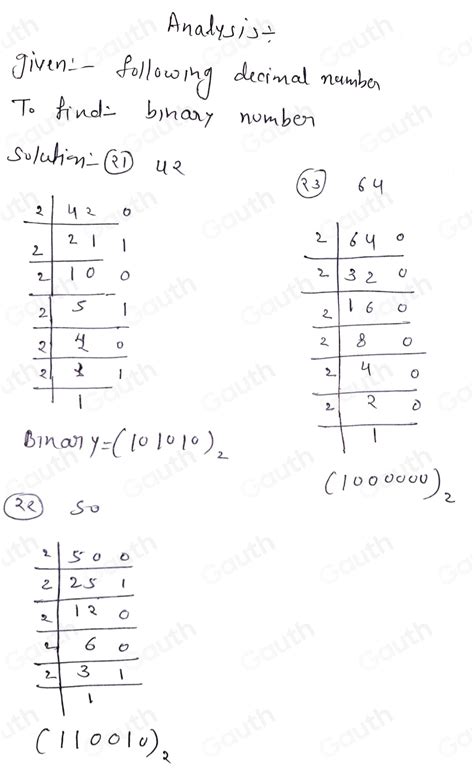 Analysis:-
given:- following decimal number
To find:- binary number
Solution:- (21) 42
2 | 42 0
2 | 21 1
2 | 10 0
2 | 5 1
2 | 0
2 | 1
1
Binary=(101010)2
(22) 50
2 | 50 0
2 | 25 1
2 | 12 0
2 | 6 0
2 | 3 1
1
(110010)2
(23) 64
2 | 64 0
2 | 32 0
2 | 16 0
2 | 8 0
2 | 4 0
2 | 2 0
1
(1000000)2
Gauth